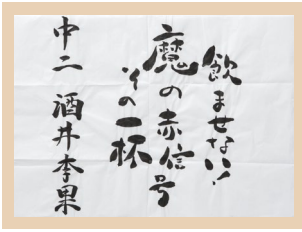 飲ませない!
魔の赤信号
その一杯
中二 酒井李果